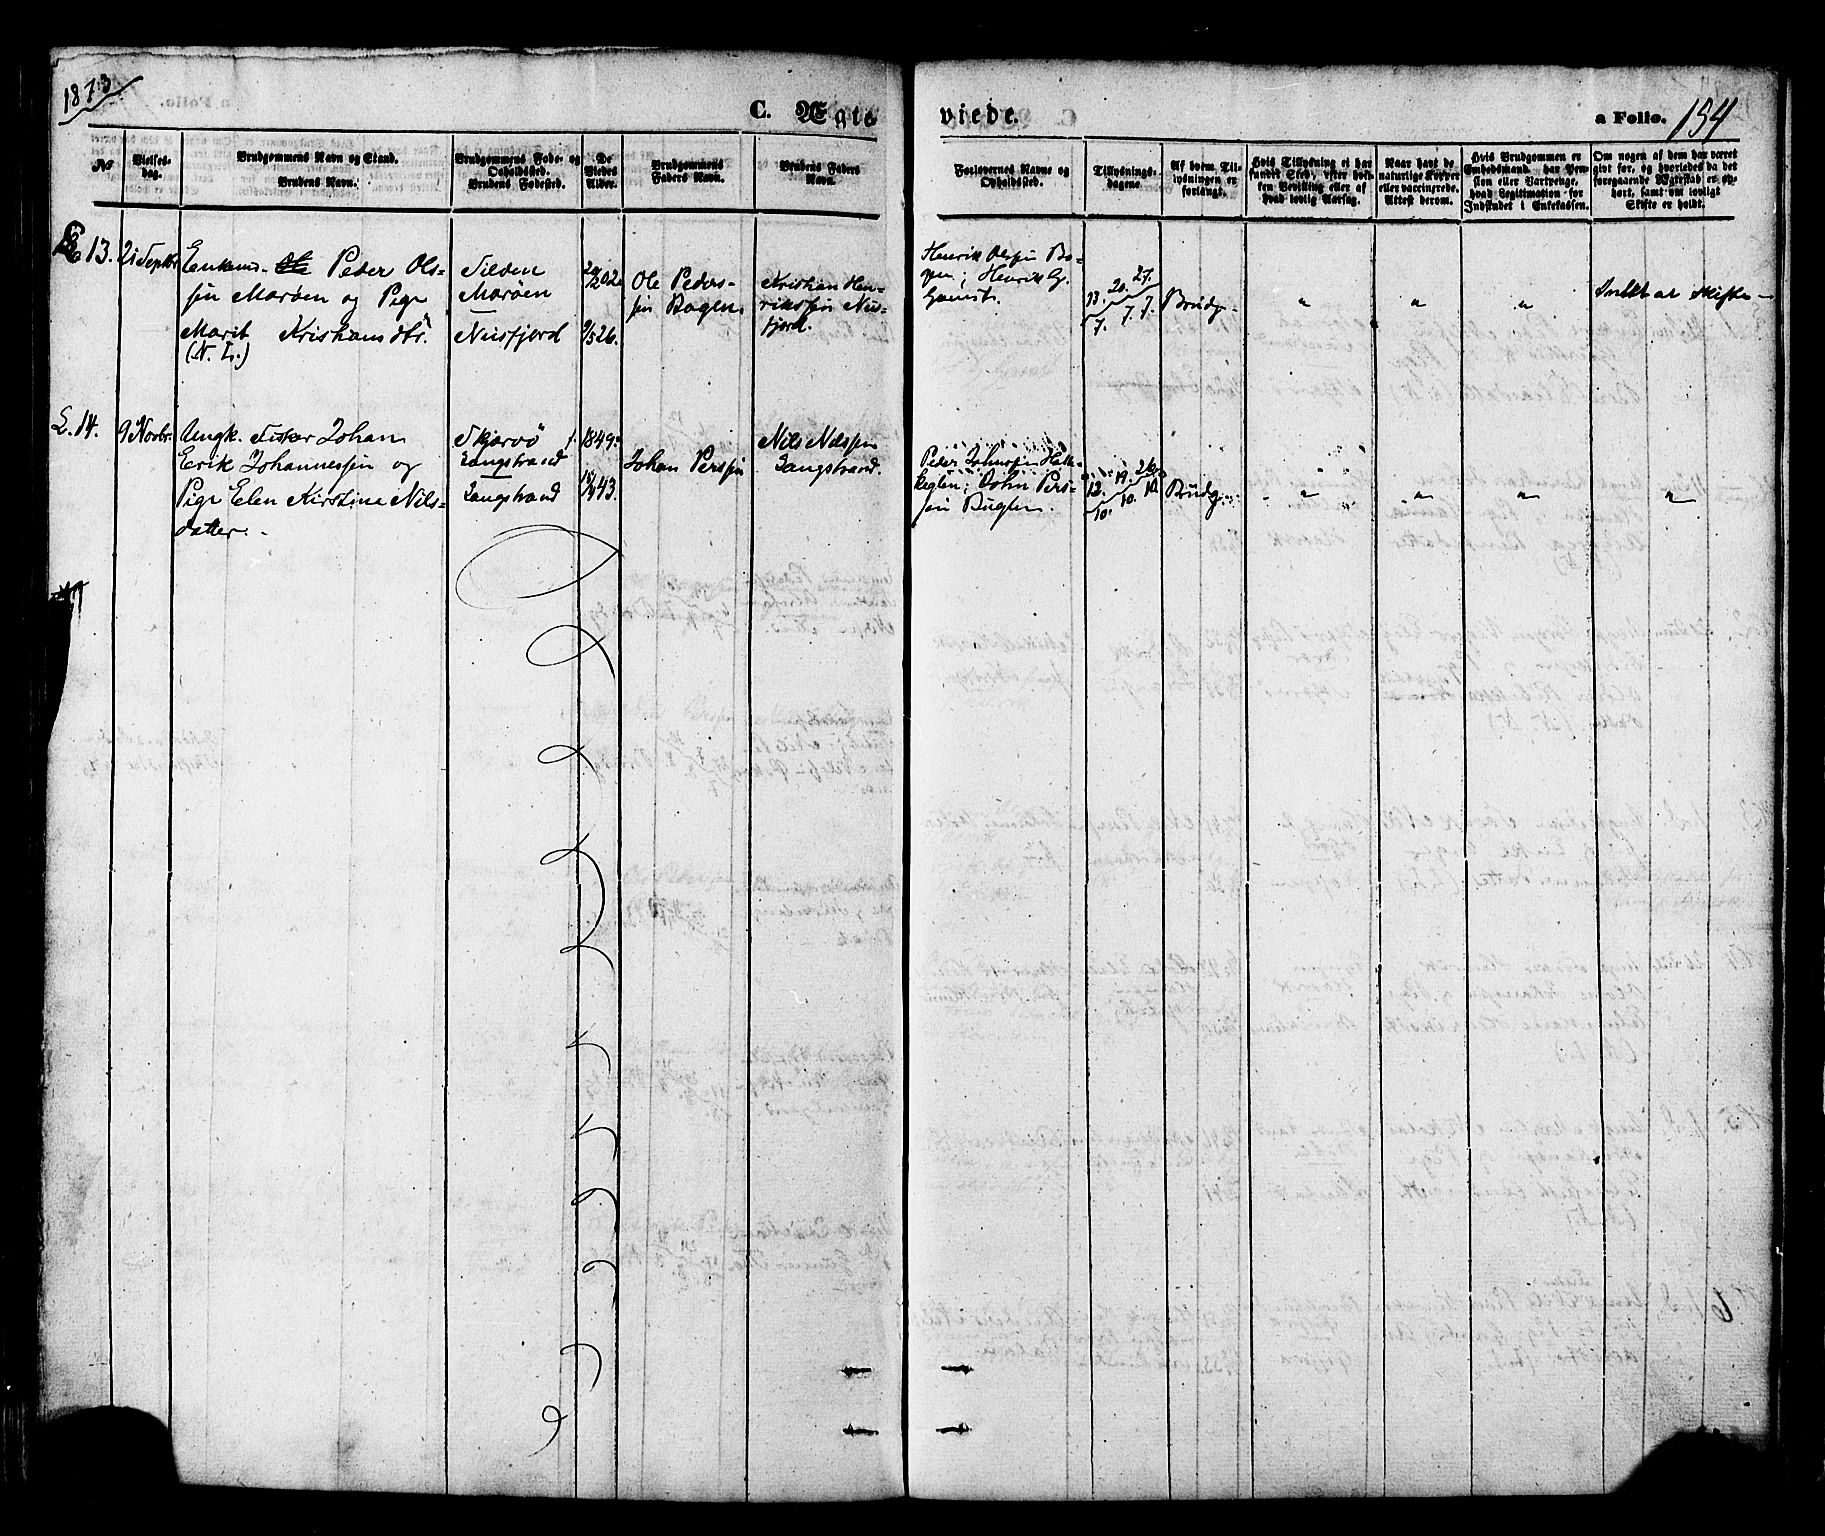 1873
C. Ægte
viede.
a Folio. 154
No
Vielses-
dag.
Brudgommens Navn og Stand.
Brudens Navn.
Brudgommens Føde- og
Opholdssted.
Brudens Fødested.
De
Viedes
Alder.
Brudgommens
Faders Navn.
Brudens Faders
Navn.
Forlovernes Navne og
Opholdssted.
Tillysnings-
dagene.
Af hvem Til-
lysningen er
forlangt.
Hvis Tillysning ei har
fundet Sted, efter hvil-
ken Bevilling eller af
hvad lovlig Aarsag.
Naar havt de
naturlige Kopper
eller vaccinerede.
Attest derom.
Hvis Brudgommen er
Embedsmand, har Pen-
sion eller Vartpenge,
hvad Legitimation for
Indskudet i Enkekassen.
Om nogen af dem har været
gift før, og hvorledes da det
foregaaende Ægteskab er op-
hørt, samt om lovligt
Skifte er holdt.
L. 13.
21 Septbr
Enkemd. Peder Ols-
sen Marøen og Pige
Marit Kristians dtr.
(N. L.)
Marøen
Niisfjord
20/12 02.
9/5 26.
Ole Peders-
sen Bogen
Kristian Hen-
riksen Niis-
fjord.
Henrik Olsen Bo-
gen; Henrik G.
13. 20. 27.
7. 7. 7.
Brudg.
"
"
"
Intet at skifte
L. 14.
9 Novbr.
Ungk. Fisker Johan
Erik Johannessen og
Pige Elen Kirstina Nils-
datter.
Skjærvø f.
Langstrand
Langstrand
1849.
43.
Johan Persen
Nils Nilssen
Langstrand.
Peder Johnsen
John Pers-
sen Buglen.
12. 19. 26.
10. 10. 10.
Brudg.
"
"
"
"